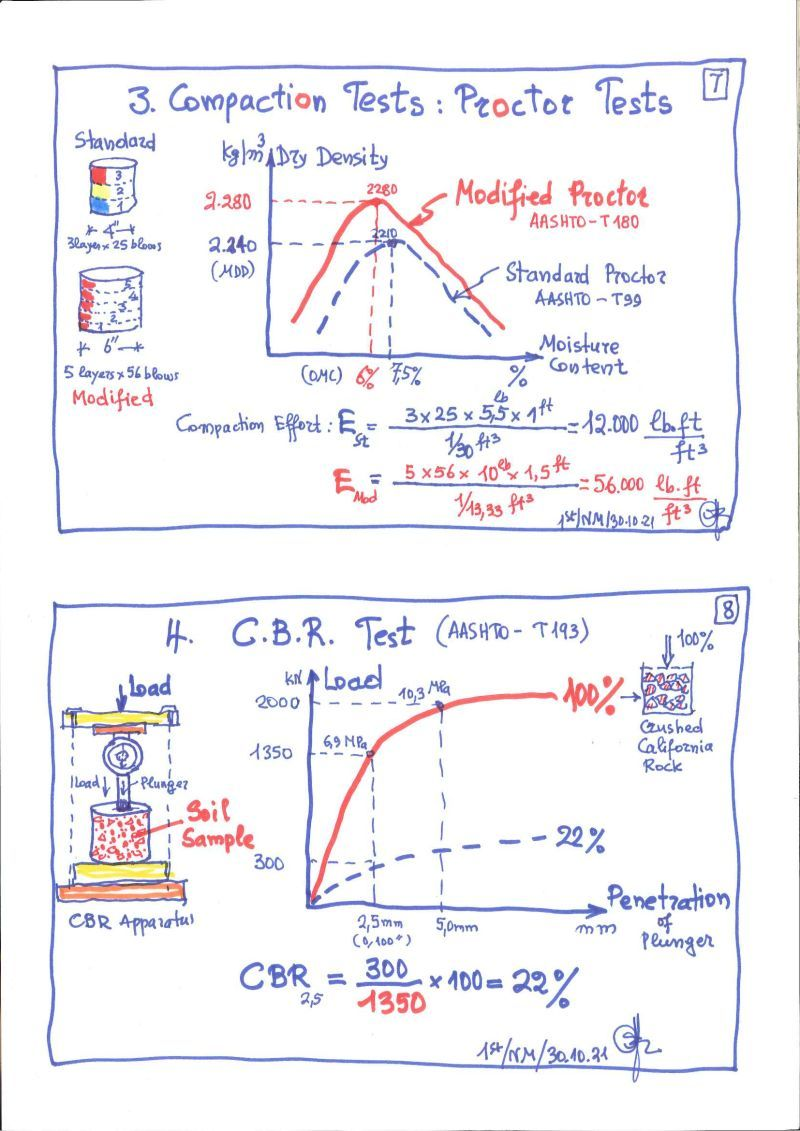 7
3. Compaction Tests: Proctor Tests
Standard
3
2
1
4"
3 layers x 25 blows
5
4
3
2
1
6"
5 layers x 56 blows
Modified
kg/m³
Dry Density
2280
2.280
Modified Proctor
AASHTO-T180
2210
2.240
(MDD)
Standard Proctor
AASHTO-T99
Moisture
Content
(OMC) 6% 7,5% %
Compaction Effort: E St = 3 x 25 x 5,5 lb x 1 ft / 1/30 ft³ = 12.000 lb.ft / ft³
E Mod = 5 x 56 x 10 lb x 1,5 ft / 1/13,33 ft³ = 56.000 lb.ft / ft³
1st/NM/30.10.21
8
4. C.B.R. Test (AASHTO - T193)
Load
Load
Plunger
Soil
Sample
CBR Apparatus
kN
Load
2000
10,3 MPa
100%
100%
Crushed
California
Rock
1350
6,9 MPa
22%
300
2,5mm
(0,100")
5,0mm
mm
Penetration
of
Plunger
CBR 2,5 = 300 / 1350 x 100 = 22%
1st/NM/30.10.21